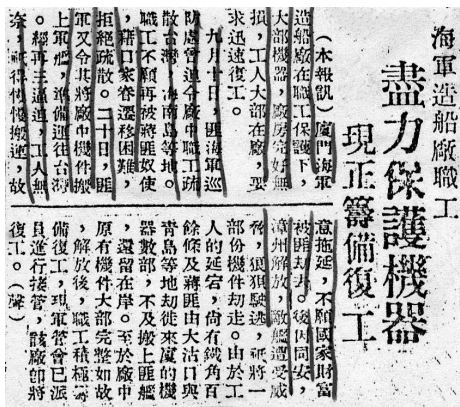 海軍造船廠職工
盡力保護機器
現正籌備復工
（本報訊）廈門海軍
造船廠在職工保護下，
大部機器，廠房完好無
損，工人大部在廠，要
求迅速復工。
九月十日，匪海軍巡
防處曾迫令廠中職工疏
散台灣，海南島等地。
職工不願再被蔣匪奴使
，藉口家眷遷移困難，
拒絕疏散。二十日，匪
軍又令其將廠中機件搬
上軍艦，準備運往台灣
。經再三逼迫，工人無
奈，祇得慢慢搬運，故
意拖延，不願國家財富
被匪劫去。後因同安，
漳州解放，敵艦遭受威
脅，狼狽駛逃，祇將一
部份機件劫走。由於工
人的延宕，尚有鐵角百
餘條及蔣匪由大沽口與
青島等地劫徙來廈的機
器數部，不及搬上匪艦
，還留在岸。至於廠中
原有機件大部完整如故
，解放後，職工積極籌
備復工，現軍管會已派
員進行接管，該廠即將
復工。（聲）